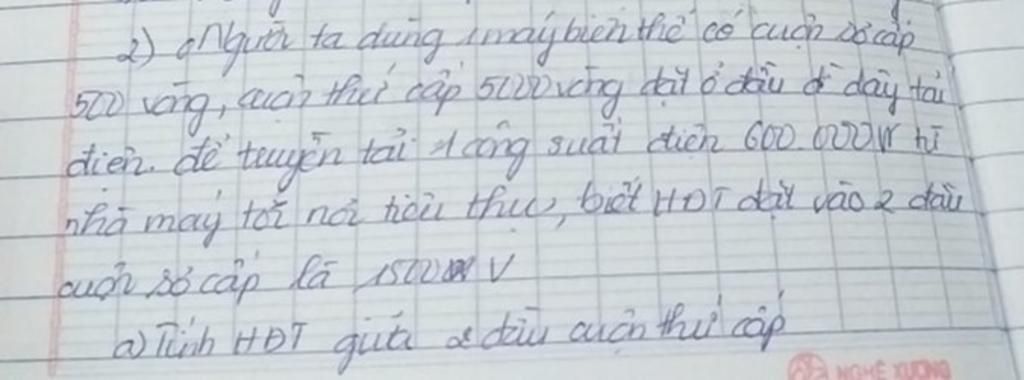 2) Người ta dùng 1 máy biến thế có cuộn sơ cấp
500 vòng, cuộn thứ cấp 5000 vòng đặt ở đầu đ dây tải
điện. để truyền tải 1 công suất điện 600.000W từ
nhà máy tới nơi tiêu thụ, biết HĐT đặt vào 2 đầu
cuộn sơ cấp là 1500 V
a) Tính HĐT giữa 2 đầu cuộn thứ cấp
NGHÊ XƯƠNG